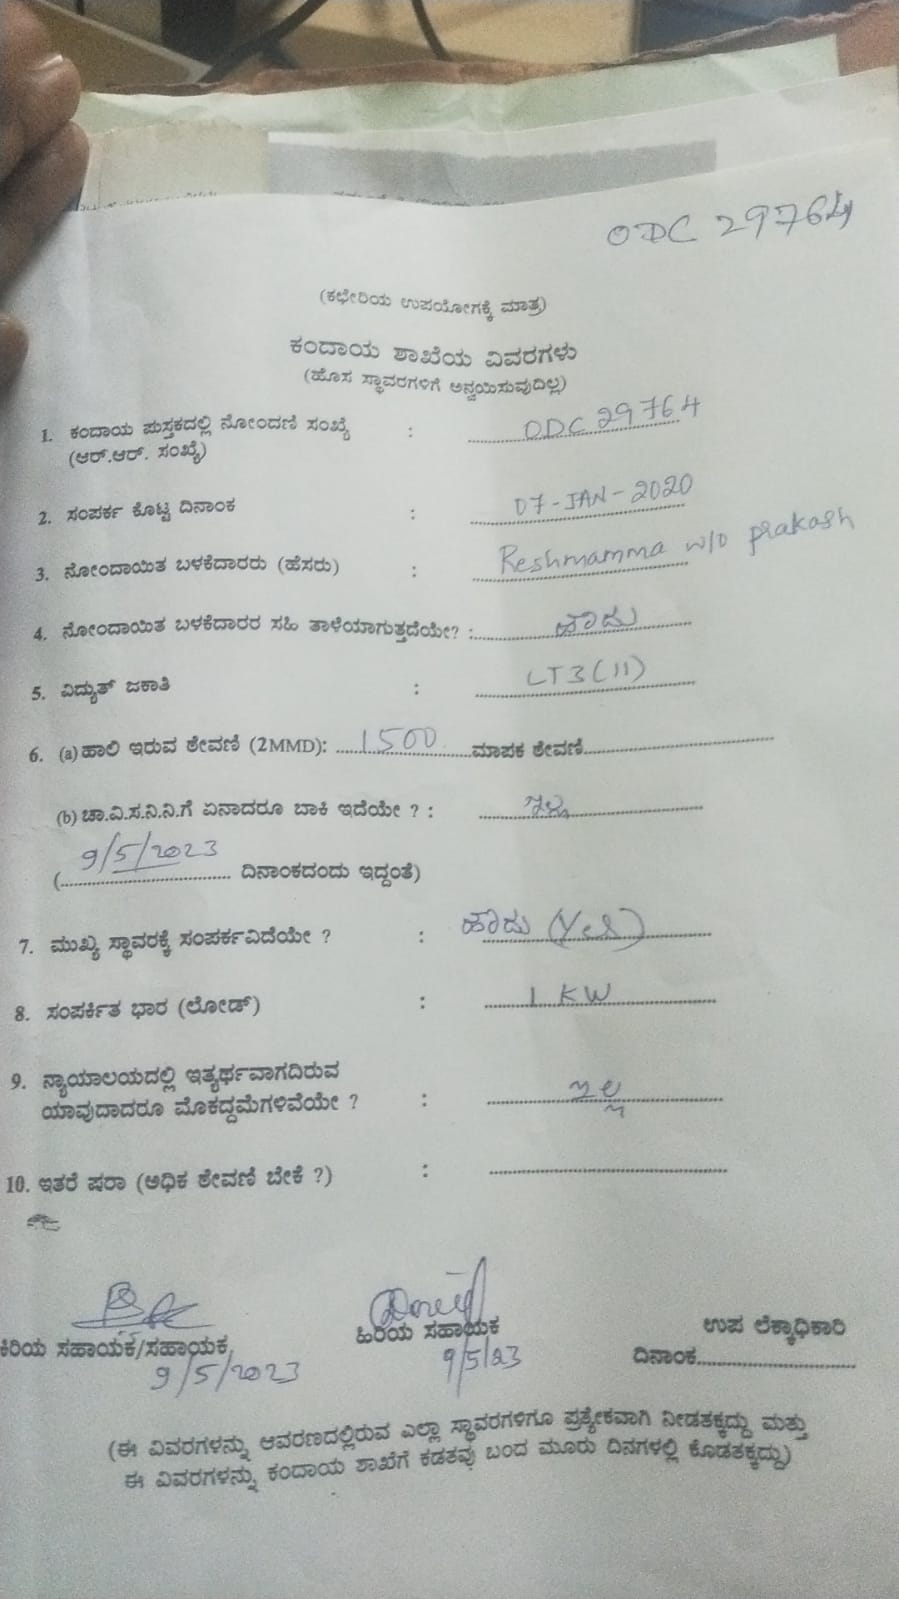 ODC 29764
(ಕಛೇರಿಯ ಉಪಯೋಗಕ್ಕೆ ಮಾತ್ರ)
ಕಂದಾಯ ಶಾಖೆಯ ವಿವರಗಳು
(ಹೊಸ ಸ್ಥಾವರಗಳಿಗೆ ಅನ್ವಯಿಸುವುದಿಲ್ಲ)
1. ಕಂದಾಯ ಪುಸ್ತಕದಲ್ಲಿ ನೋಂದಣಿ ಸಂಖ್ಯೆ : ODC 29764
(ಆರ್.ಆರ್. ಸಂಖ್ಯೆ)
2. ಸಂಪರ್ಕ ಕೊಟ್ಟ ದಿನಾಂಕ : 07-JAN-2020
3. ನೋಂದಾಯಿತ ಬಳಕೆದಾರರು (ಹೆಸರು) : Reshmamma w/o prakash
4. ನೋಂದಾಯಿತ ಬಳಕೆದಾರರ ಸಹಿ ತಾಳೆಯಾಗುತ್ತದೆಯೇ? : ಹೌದು
5. ವಿದ್ಯುತ್ ಜಕಾತಿ : LT3(11)
6. (a) ಹಾಲಿ ಇರುವ ಠೇವಣಿ (2MMD): 1500 ಮಾಪಕ ಠೇವಣಿ
(b) ಚಾ.ವಿ.ಸ.ನಿ.ನಿ.ಗೆ ಏನಾದರೂ ಬಾಕಿ ಇದೆಯೇ ? : ಇಲ್ಲ
(9/5/2023 ದಿನಾಂಕದಂದು ಇದ್ದಂತೆ)
7. ಮುಖ್ಯ ಸ್ಥಾವರಕ್ಕೆ ಸಂಪರ್ಕವಿದೆಯೇ ? : ಹೌದು (Yes)
8. ಸಂಪರ್ಕಿತ ಭಾರ (ಲೋಡ್) : 1 KW
9. ನ್ಯಾಯಾಲಯದಲ್ಲಿ ಇತ್ಯರ್ಥವಾಗದಿರುವ
ಯಾವುದಾದರೂ ಮೊಕದ್ದಮೆಗಳಿವೆಯೇ ? : ಇಲ್ಲ
10. ಇತರೆ ಷರಾ (ಅಧಿಕ ಠೇವಣಿ ಬೇಕೆ ?) :
ಕಿರಿಯ ಸಹಾಯಕ/ಸಹಾಯಕ ಹಿರಿಯ ಸಹಾಯಕ ಉಪ ಲೆಕ್ಕಾಧಿಕಾರಿ
9/5/2023 9/5/23 ದಿನಾಂಕ
(ಈ ವಿವರಗಳನ್ನು ಆವರಣದಲ್ಲಿರುವ ಎಲ್ಲಾ ಸ್ಥಾವರಗಳಿಗೂ ಪ್ರತ್ಯೇಕವಾಗಿ ನೀಡತಕ್ಕದ್ದು ಮತ್ತು
ಈ ವಿವರಗಳನ್ನು ಕಂದಾಯ ಶಾಖೆಗೆ ಕಡತವು ಬಂದ ಮೂರು ದಿನಗಳಲ್ಲಿ ಕೊಡತಕ್ಕದ್ದು)